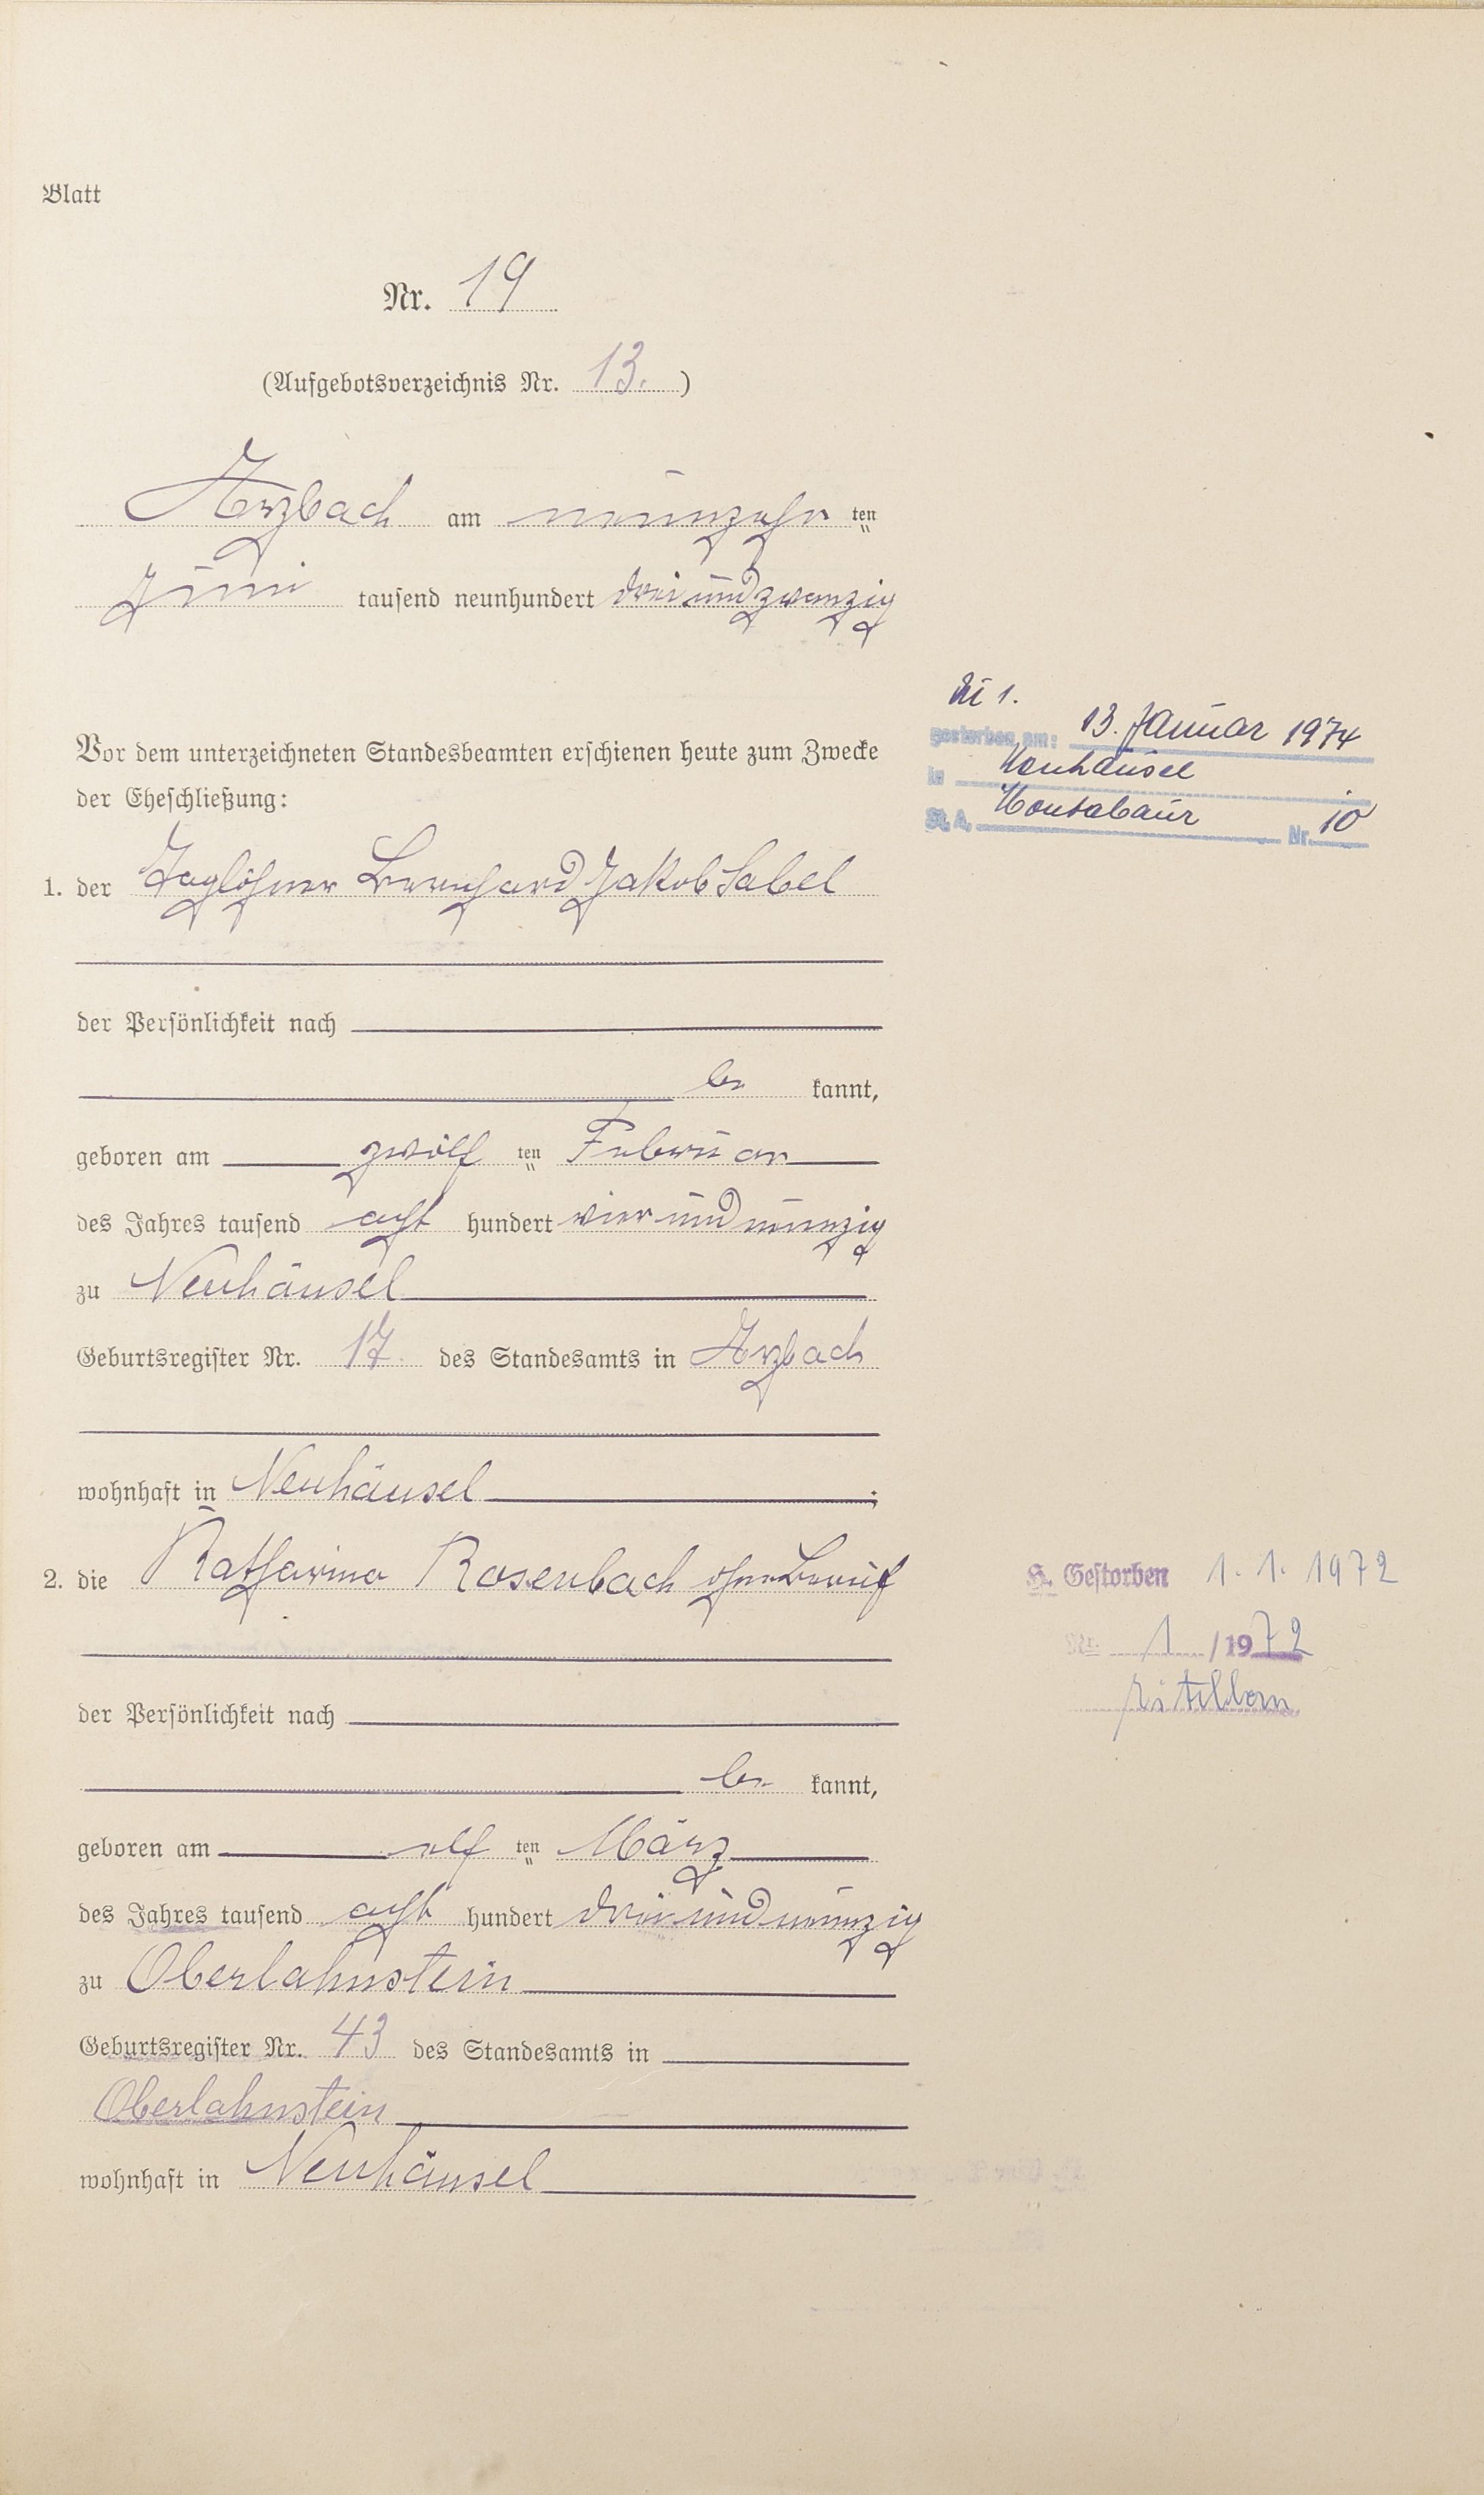 Blatt
Nr. 19
(Aufgebotsverzeichnis Nr. 13.)
Arzbach am neunzehn ten
Juni tausend neunhundert dreiundzwanzig
Vor dem unterzeichneten Standesbeamten erschienen heute zum Zwecke
der Eheschließung:
1. der Taglöhner Bernhard Jakob Sabel
der Persönlichkeit nach
be kannt,
geboren am zwölf ten Februar
des Jahres tausend acht hundert vierundneunzig
zu Neuhäusel
Geburtsregister Nr. 17. des Standesamts in Arzbach
wohnhaft in Neuhäusel;
2. die Katharina Rosenbach ohne Beruf
der Persönlichkeit nach
be kannt,
geboren am elf ten März
des Jahres tausend acht hundert dreiundneunzig
zu Oberlahnstein
Geburtsregister Nr. 43 des Standesamts in
Oberlahnstein
wohnhaft in Neuhäusel
Zu 1.
gestorben am: 13. Januar 1974
in Neuhäusel
St. A. Montabaur Nr. 10
H. Gestorben 1. 1. 1972
Nr. 1/1972